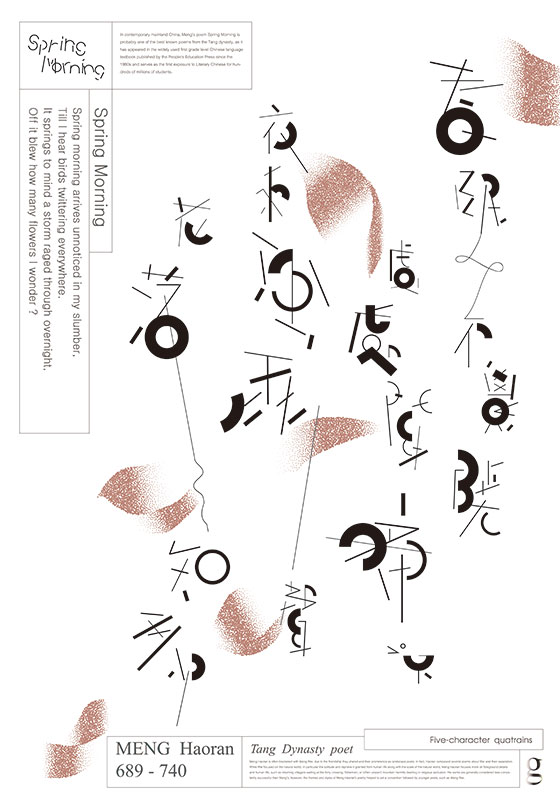 Spring
Morning
In contemporary mainland China, Meng's poem Spring Morning is
probably one of the best known poems from the Tang dynasty, as it
has appeared in the widely used first grade level Chinese language
textbook published by the People's Education Press since the
1960s and serves as the first exposure to Literary Chinese for hun-
dreds of millions of students.
Spring Morning
Spring morning arrives unnoticed in my slumber,
Till I hear birds twittering everywhere.
It springs to mind a storm raged through overnight,
Off it blew how many flowers I wonder ?
春眠不覺曉
處處聞啼鳥
夜來風雨聲
花落知多少
Five-character quatrains
MENG Haoran
689 - 740
Tang Dynasty poet
g